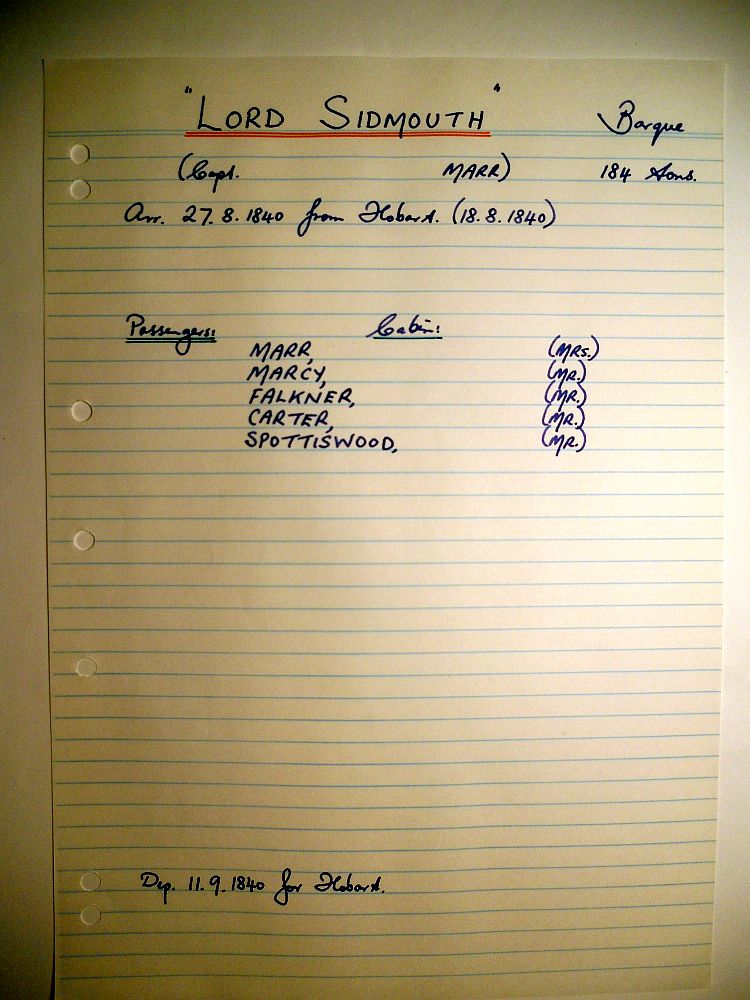 "LORD SIDMOUTH" Barque
(Capt. MARR) 184 tons.
Arr. 27.8.1840 from Hobart. (18.8.1840)
Passengers: Cabin:
MARR, (MRS.)
MARCY, (MR.)
FALKNER, (MR.)
CARTER, (MR.)
SPOTTISWOOD, (MR.)
Dep. 11.9.1840 for Hobart.